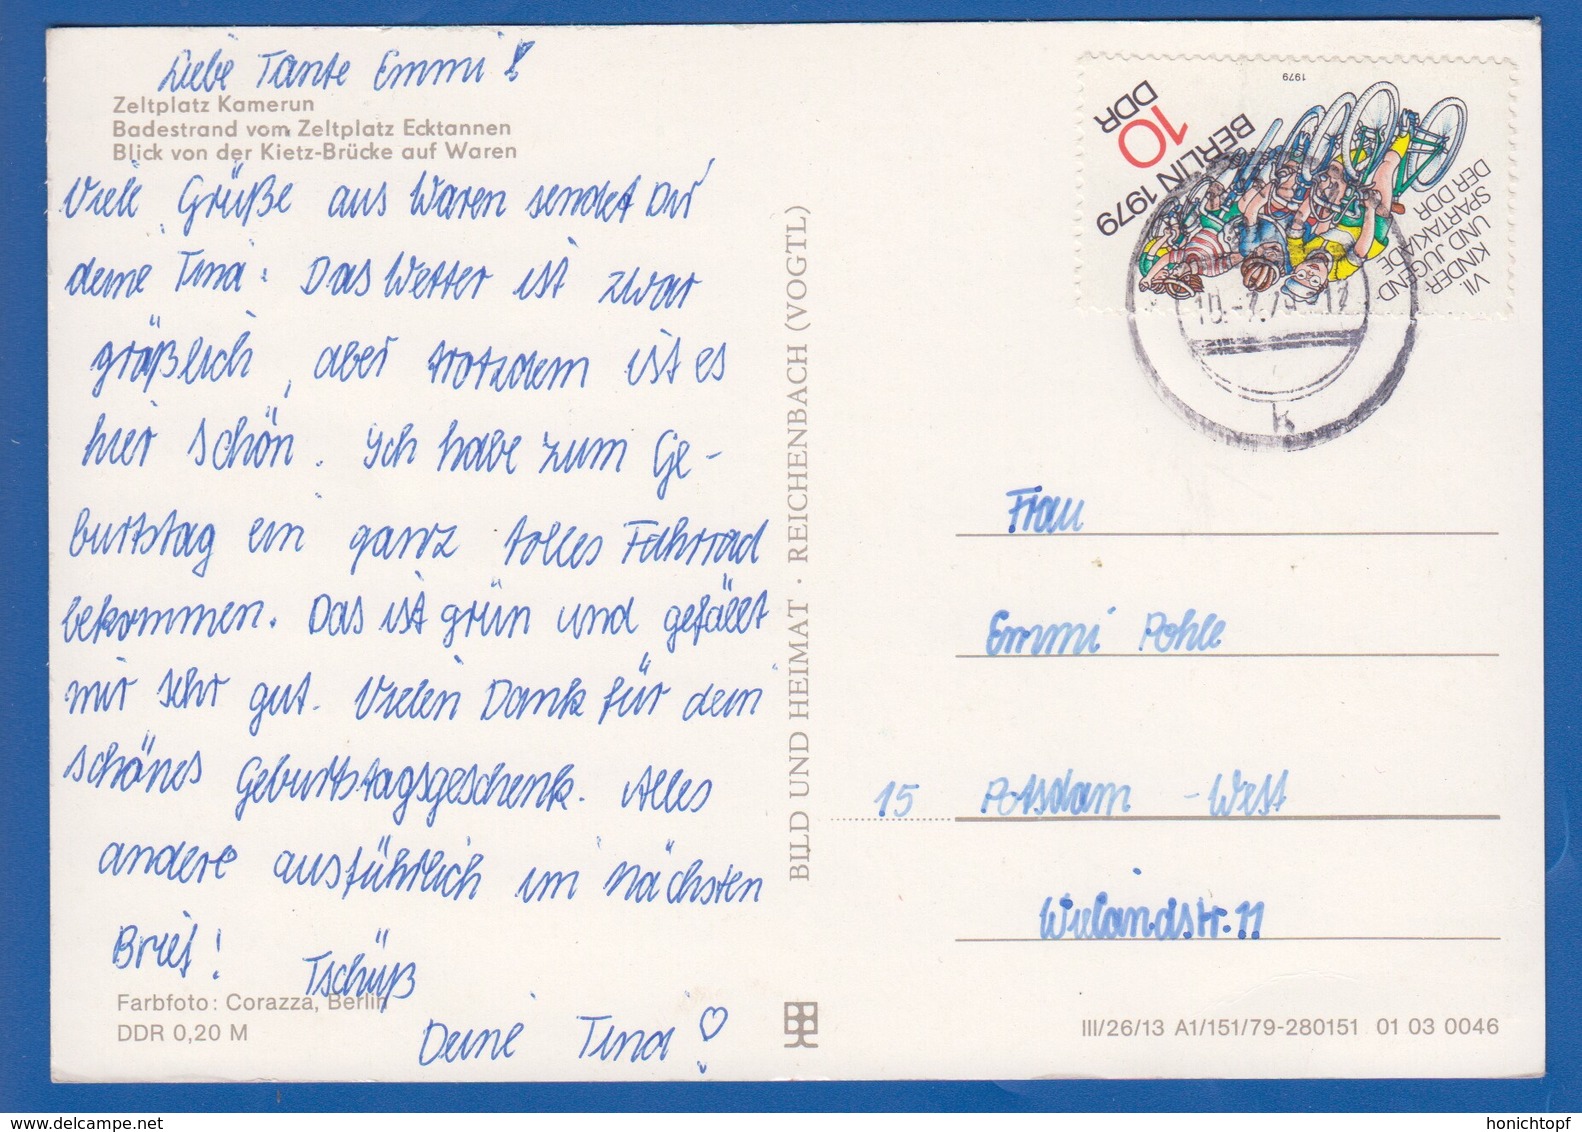 Liebe Tante Emmi!
Zeltplatz Kamerun
Badestrand vom Zeltplatz Ecktannen
Blick von der Kietz-Brücke auf Waren
Viele Grüße aus Waren sendet Dir
deine Tina. Das Wetter ist zwar
gräßlich, aber trotzdem ist es
hier schön. Ich habe zum Ge-
burtstag ein ganz tolles Fahrrad
bekommen. Das ist grün und gefällt
mir sehr gut. Vielen Dank für dein
schönes Geburtstagsgeschenk. Alles
andere ausführlich im nächsten
Brief! Tschüß
Deine Tina!
Farbfoto: Corazza, Berlin
DDR 0,20 M
BILD UND HEIMAT · REICHENBACH (VOGTL)
1979
10
DDR
BERLIN 1979
VII.
KINDER-
UND JUGEND-
SPARTAKIADE
DER DDR
Frau
Emmi Pohle
15 Potsdam - West
Wielandstr. 11
III/26/13 A1/151/79-280151 01 03 0046
honichtopf